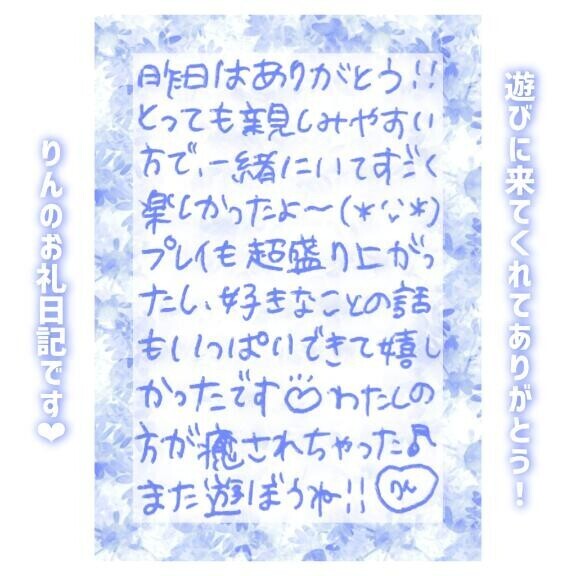 遊びに来てくれてありがとう！
昨日はありがとう!!
とっても親しみやすい
方で、一緒にいてすごく
楽しかったよ〜(*'ᵕ'*)
プレイも超盛り上がっ
たし、好きなことの話
もいっぱいできて嬉し
かったです♡わたしの
方が癒されちゃった♪
また遊ぼうね!!
りん
りんのお礼日記です❤